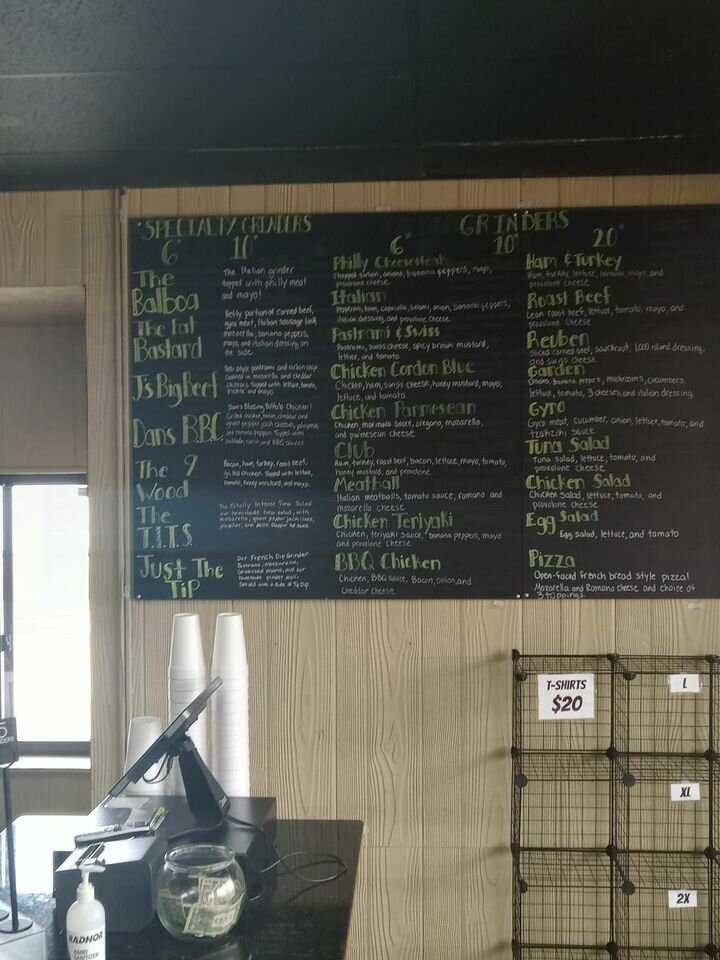 SPECIALTY GRINDERS
6" 10"
The Balboa
The Italian grinder
topped with philly meat
and mayo!
The Fat
Bastard
Hefty portion of corned beef,
gyro meat, Italian sausage link
mozzarella, banana peppers,
mayo, and italian dressing on
the side.
J's Big Beef
Deli style pastrami and sirloin steak
cheeses. Topped with lettuce, tomato,
Dans BBC
Dan's Blazing Buffalo Chicken!
Grilled chicken, bacon, cheddar and
buffalo, ranch, and BBQ sauces
The 9
Wood
Bacon, ham, turkey, roast beef,
grilled chicken. Topped with lettuce,
tomato, honey mustard, and mayo.
The
T.I.T.S.
The Totally Intense Tuna Salad
our homemade tuna salad, with
Just The
Tip
Our French Dip Grinder
Pastrami, mozzarella,
caramelized onions, and our
Served with a side of Tip Dip
GRINDERS
6" 10" 20"
Philly Cheesesteak
Chopped sirloin, onions, banana peppers, mayo,
provolone cheese
Italian
Pepperoni, ham, capicolla, salami, onion, banana peppers,
italian dressing, and provolone cheese
Pastrami & Swiss
Pastrami, swiss cheese, spicy brown mustard,
lettuce, and tomato
Chicken Cordon Blue
Chicken, ham, swiss cheese, honey mustard, mayo,
lettuce, and tomato
Chicken Parmesean
Chicken, marinara sauce, oregano, mozarella,
and parmesean cheese
Club
Ham, turkey, roast beef, bacon, lettuce, mayo, tomato,
honey mustard, and provolone
Meatball
Italian meatballs, tomato sauce, romano and
mozarella cheese
Chicken Teriyaki
Chicken, teriyaki sauce, banana peppers, mayo
and provolone cheese
BBQ Chicken
Chicken, BBQ sauce, Bacon, onion, and
Cheddar cheese
Ham & Turkey
Ham, turkey, lettuce, tomato, mayo, and
provolone cheese
Roast Beef
Lean roast beef, lettuce, tomato, mayo, and
provolone cheese
Reuben
Sliced corned beef, saurkraut, 1,000 island dressing,
and swiss cheese
Garden
Onions, banana peppers, mushrooms, cucumbers,
lettuce, tomato, 3 cheeses, and italian dressing
Gyro
Gyro meat, cucumber, onion, lettuce, tomato, and
tzaihziki sauce
Tuna Salad
Tuna salad, lettuce, tomato, and
provolone cheese
Chicken Salad
Chicken Salad, lettuce, tomato, and
provolone cheese
Egg Salad
Egg salad, lettuce, and tomato
Pizza
Open-faced french bread style pizza!
Mozarella and Romano cheese and choice of
3 toppings.
T-SHIRTS
$20
L
XL
2X
RADNOR
HAND
SANITIZER